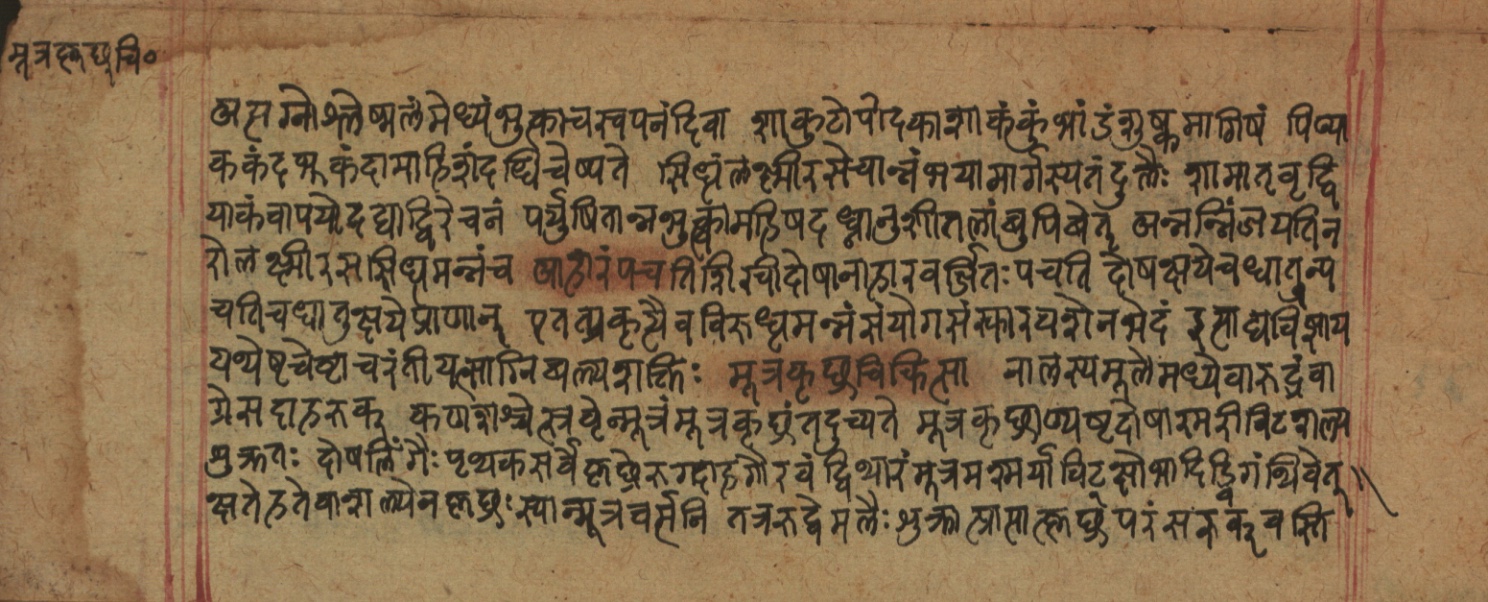 मूत्रकृछ्रचि०
असग्नोश्लेष्मलंमेध्यंभुत्काचस्वपनंदिवा शाकुटोपोदकाशाकंकुंभांडंशुष्कमामिषं पिण्या
ककंदमूकंदामाहिशंदधिचेष्यते स्निग्धंलक्ष्मीरसेचान्नंअपामार्गस्यतंदुलैः शामातृवृद्धि
पाकंवापयोदद्याद्विरेचनं पर्युषितान्नभुत्कामहिषदध्नातुशीतलांबुपिबेत् अन्नन्निंजयतिन
रोलक्ष्मीरसस्निग्धमन्नंच आहारंपचतिशिखीदोषानाहारवर्जितःपचति दोषक्षयेचधातून्प
चतिचधातुक्षयेप्राणान् एतत्प्रकृत्यैवविरूध्धमन्नंसंयोगसंस्कारवशेनभेदं इत्याद्यविज्ञाय
यथेष्टचेष्टाचरंतीयत्साग्निबल्यशक्तिः मूत्रकृछ्रचिकित्सा नालस्यमूलेमध्येवारुद्रंवा
ग्रेसदाहरुक् स्रवेन्मूत्रंमूत्रकृछ्रंतदुच्यते मूत्रकृछ्राण्यष्टदोषाश्मरीविटशल्य
शुक्रतः दोषलिंगैःपृथकसर्वैकृछ्रेरुग्दाहगौरवं द्विधारंमूत्रमश्मर्यांविट
क्षतेहतेवाशल्येनकृछ्रःस्यान्मूत्रवर्त्मनि तत्ररुद्धेमलैःशुक्र कृछ्रंपरंसरुक्वस्ति